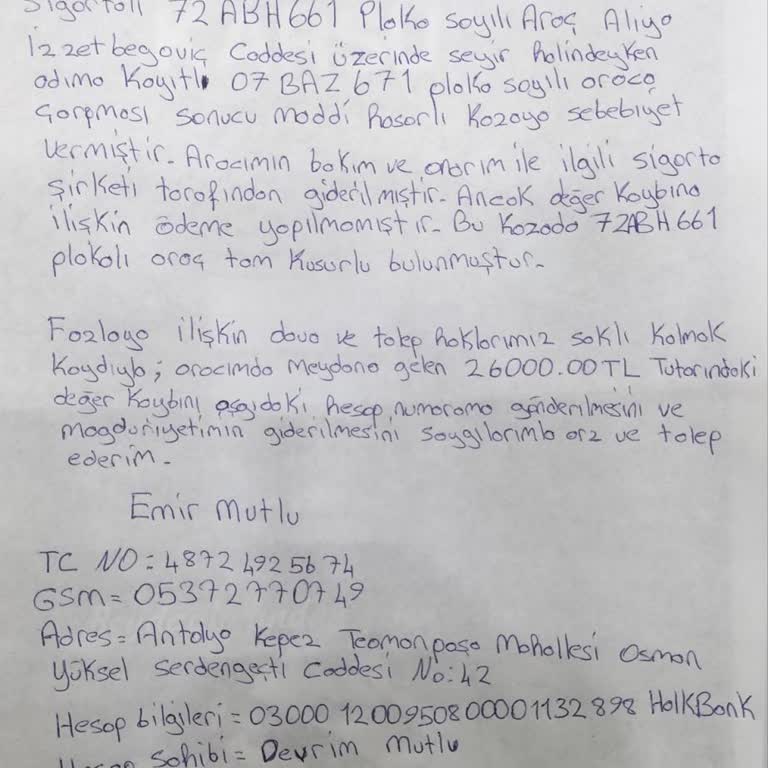 Sigortalı 72 ABH 661 Plaka sayılı Araç Aliya
İzzetbegoviç Caddesi üzerinde seyir halindeyken
adıma Kayıtlı 07 BAZ 671 plaka sayılı araca
Çarpması sonucu maddi hasarlı kazaya sebebiyet
vermiştir. Aracımın bakım ve onarım ile ilgili sigorta
şirketi tarafından giderilmiştir. Ancak değer kaybına
ilişkin ödeme yapılmamıştır. Bu kazada 72ABH 661
plakalı araç tam kusurlu bulunmuştur.
Fazlaya ilişkin dava ve talep haklarımız saklı kalmak
kaydıyla; aracımda meydana gelen 26000.00TL Tutarındaki
değer kaybını aşağıdaki hesap numarama gönderilmesini ve
mağduriyetimin giderilmesini saygılarımla arz ve talep
ederim.
Emir Mutlu
TC NO = 48724925674
GSM = 05372770749
Adres = Antalya Kepez Teomanpaşa Mahallesi Osman
Yüksel Serdengeçti Caddesi No:42
Hesap bilgileri = 03000 1200950800001132898 HalkBank
Hesap Sahibi = Devrim Mutlu